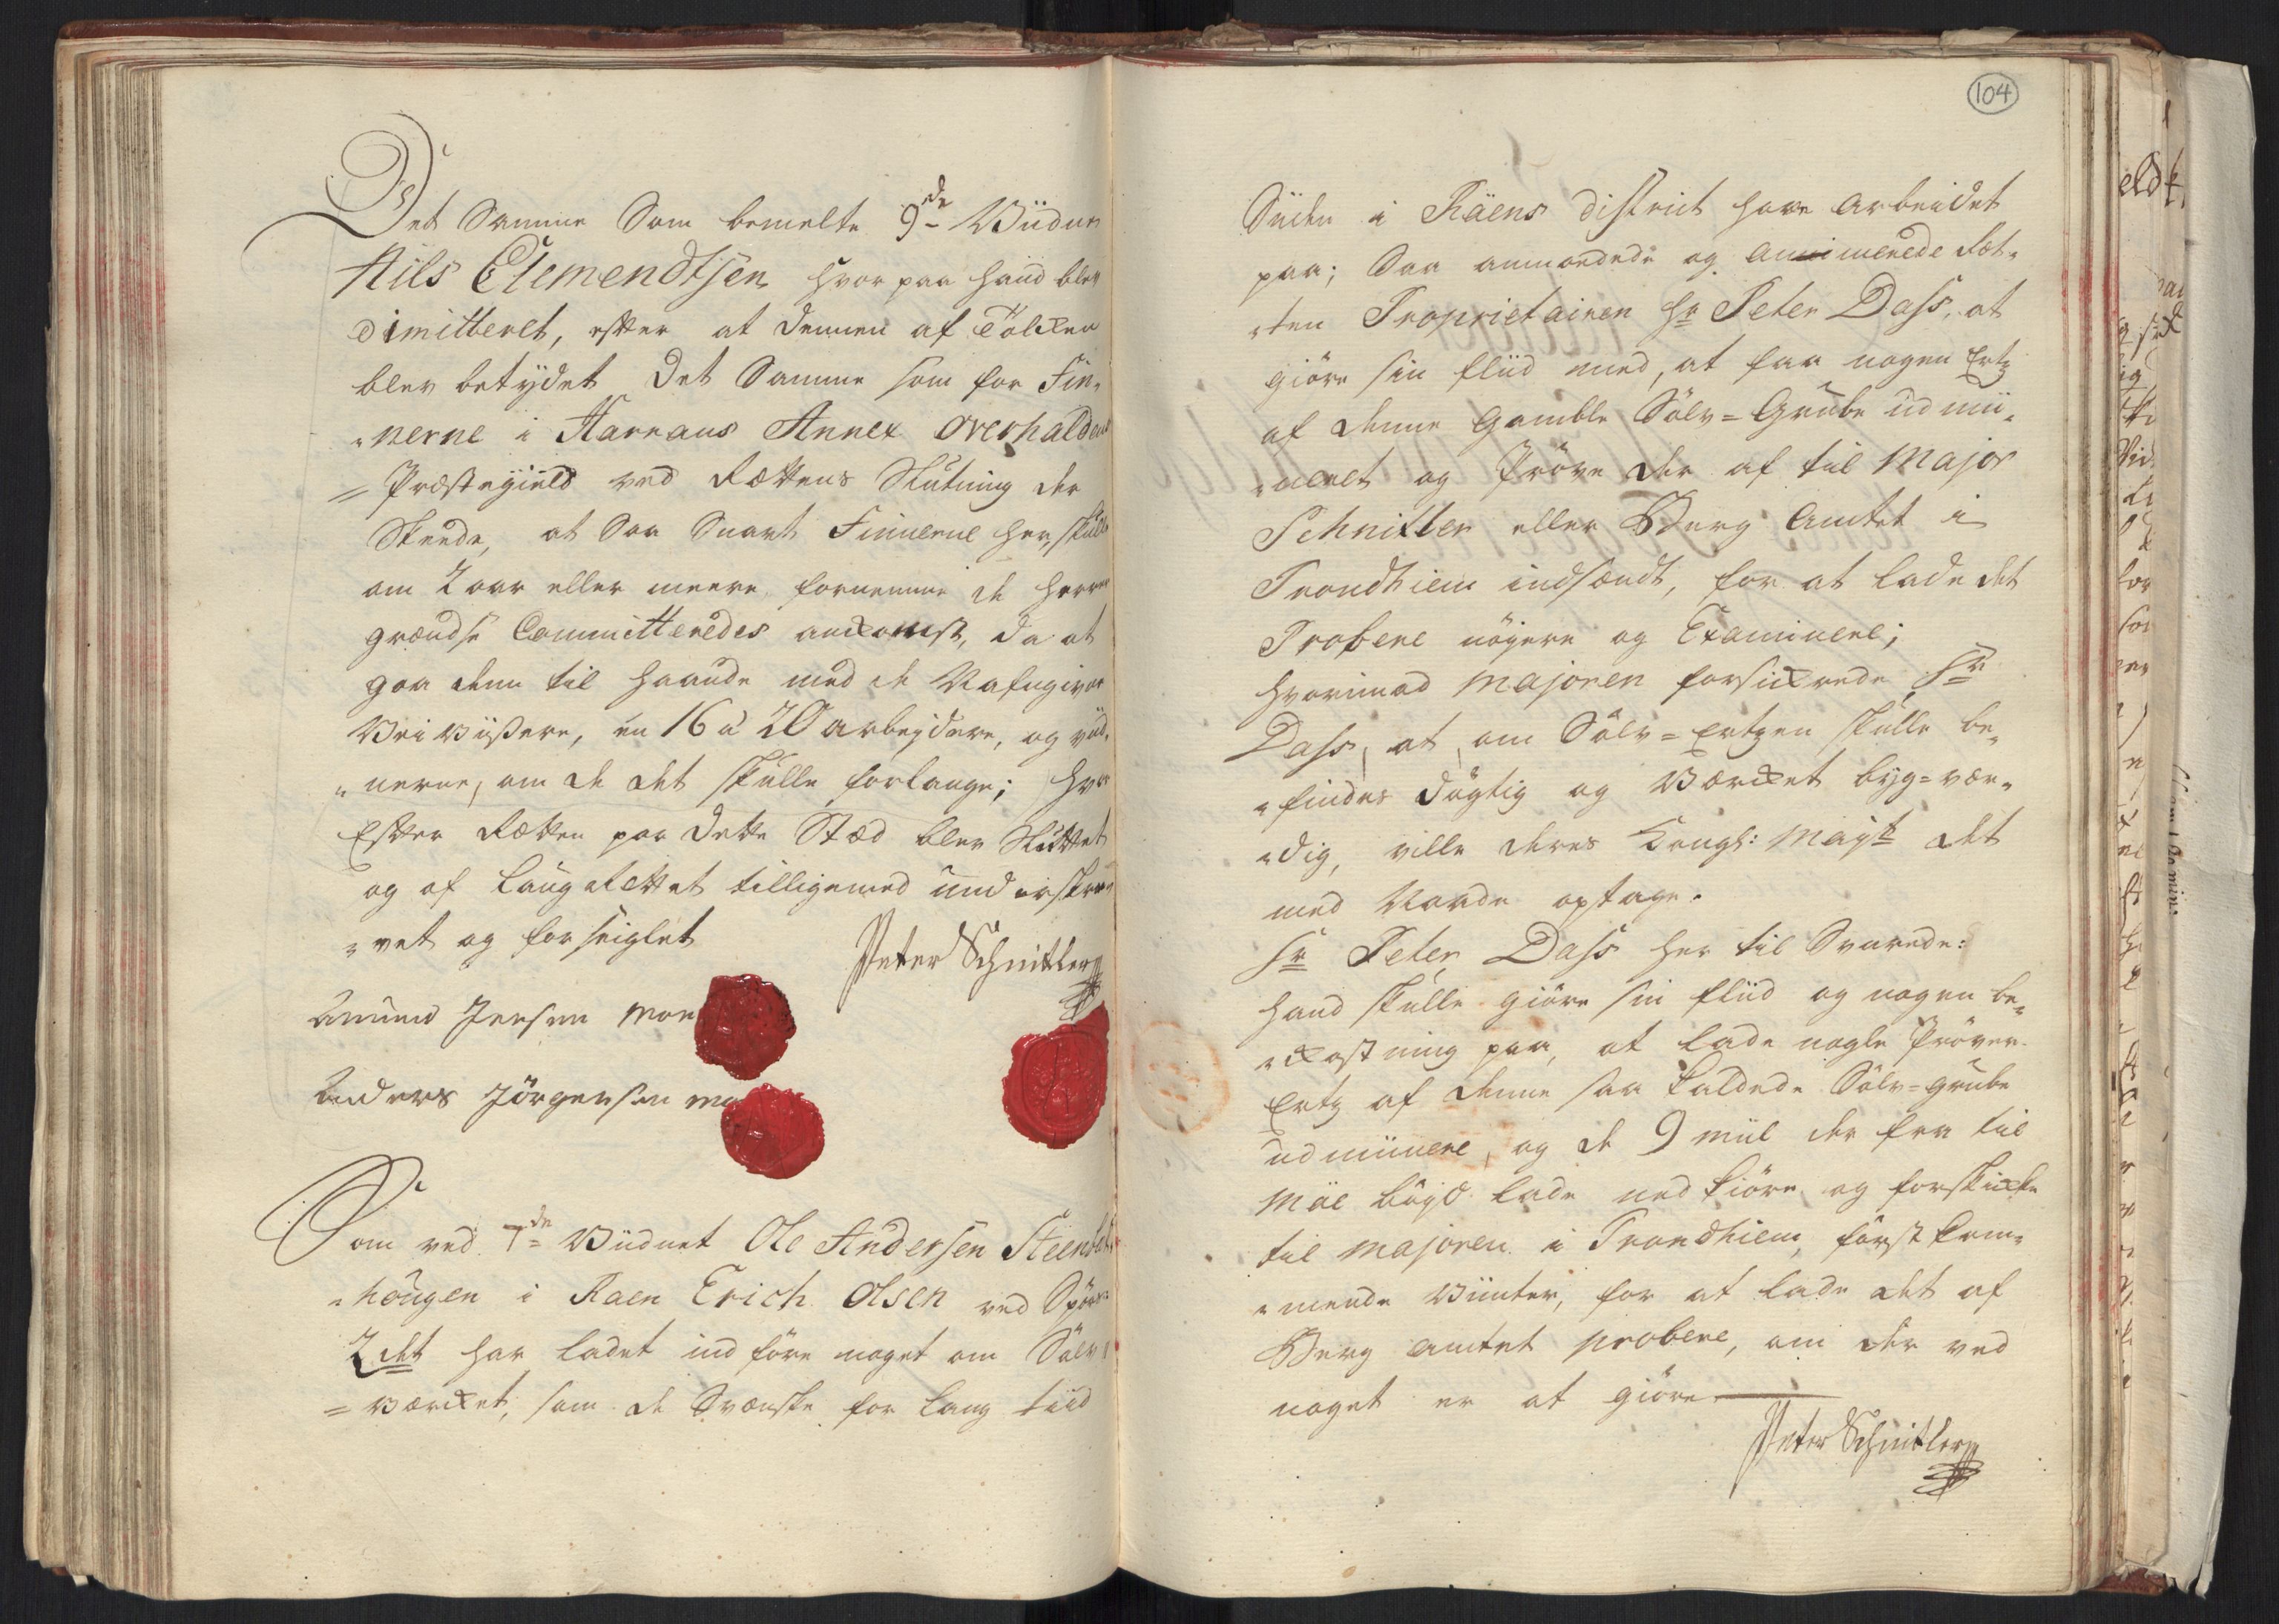 Det Samme Som bemelte 9de Viidne
Nils Clemendtsen hvor paa hand blev
dimitteret, efter at denne af Tolken
blev betÿdet det Samme som for Fin„
„nerne i Harrans Annex Overhaldens
= Præstegield ved Rættens Slutning der
Skeede, at Saa Snart Finnerne her, skulle
om 2 aar eller meere fornemme de Herrer
grændse Committeredes ankomst, da at
gaa dem til Haande med de
Veiviisere, en 16 a 20 arbeÿdere, og
„nerne, om de det skulle forlange; hvor
Efter Rætten paa dette Stæd blev Sluttet
og af Laugrettet tilligemed underskre„
„vet og forseiglet
Peter Schnitler
Amund Jensen
Anders Jörgensen
Som ved 7de Viidnet Ole Andersen Steen
„hougen i Raen Erich Olsen ved Spörs„
2det har ladet indföre noget om Sölv
= værcket, som de Svenske for lang tiid
104
Siden i Räens district have arbeidet
paa; Saa anmodede og animerede Ret„
„ten Proprietairen Hr Peter Dass, at
giöre sin fliid med, at faa nogen Ertz
af denne gamble Sölv=Grube ud mii„
„neret og Pröve der af til Major
Schnitler eller Berg Amtet i
Trondhiem indsændt, for at lade det
Probere nöÿere og Examinere;
hvorimod Majoren forsickrede Sr
Dass, at om Sölv=Ertzen skulle be„
„findes dÿgtig og Værcket bÿg=vær„
„dig, ville deres Kongl: Mayt det
med Naade optage.
Sr Peter Dass her til Svarede:
hand skulle giöre sin fliid og nogen be„
„kostning paa, at lade nogle Pröver
Ertz af denne saa kaldede Sölv=grube
udminere, og de 9 miil der fra til
Möe bÿgd lade ned kiöre og forskicke
til Majoren i Trondhiem, först kom„
„mende Viinter, for at lade det af
Berg amtet probere, om der ved
noget er at giöre
Peter Schnitler